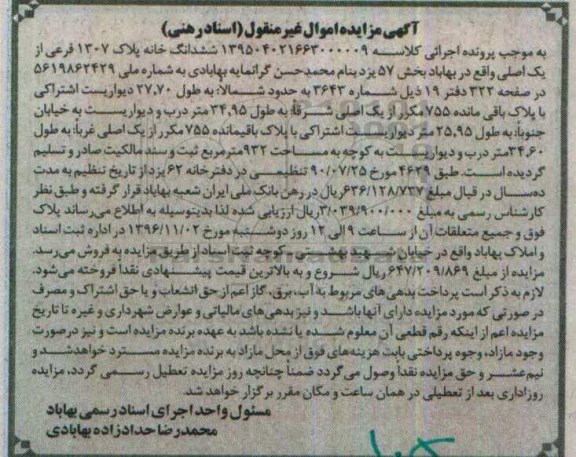 آگهی مزایده اموال غیر منقول (اسناد رهنی)
به موجب پرونده اجرائی کلاسه ۱۳۹۵۰۴۰۲۱۶۶۳۰۰۰۰۰۹ ششدانگ خانه پلاک ۱۳۰۷ فرعی از
یک اصلی واقع در بهاباد بخش ۵۷ یزد بنام محمدحسن گرانمایه بهابادی به شماره ملی ۵۶۱۹۸۶۲۴۲۹
در صفحه ۳۲۳ دفتر ۱۹ ذیل شماره ۳۶۴۳ به حدود شمالا: به طول ۲۷,۷۰ دیواریست اشتراکی
با پلاک باقی مانده ۷۵۵ مکرر از یک اصلی شرقا: به طول ۳۴,۹۵ متر درب و دیواریست به خیابان
جنوبا: به طول ۲۵,۹۵ متر دیواریست اشتراکی با پلاک باقیمانده ۷۵۵ مکرر از یک اصلی غربا: به طول
۳۴,۶۰ متر درب و دیواریست به کوچه به مساحت ۹۳۲ مترمربع ثبت و سند مالکیت صادر و تسلیم
گردیده است. طبق ۴۶۲۹ مورخ ۹۰/۰۷/۲۵ تنظیمی در دفترخانه ۶۲ یزد از تاریخ تنظیم به مدت
ده سال در قبال مبلغ ۶۳۶/۱۲۸/۷۳۷ ریال در رهن بانک ملی ایران شعبه بهاباد قرار گرفته و طبق نظر
کارشناس رسمی به مبلغ ۳/۰۳۹/۹۰۰/۰۰۰ ریال ارزیابی شده لذا بدینوسیله به اطلاع می‌رساند پلاک
فوق و جمیع متعلقات آن از ساعت ۹ الی ۱۲ روز دوشنبه مورخ ۱۳۹۶/۱۱/۰۲ در اداره ثبت اسناد
و املاک بهاباد واقع در خیابان شهید بهشتی، کوچه ثبت اسناد از طریق مزایده به فروش می‌رسد.
مزایده از مبلغ ۶۴۷/۲۰۹/۸۶۹ ریال شروع و به بالاترین قیمت پیشنهادی نقدا فروخته می‌شود.
لازم به ذکر است پرداخت بدهی‌های مربوط به آب، برق، گاز اعم از حق انشعاب و یا حق اشتراک و مصرف
در صورتی که مورد مزایده دارای آنها باشد و نیز بدهی‌های مالیاتی و عوارض شهرداری و غیره تا تاریخ
مزایده اعم از اینکه رقم قطعی آن معلوم شده یا نشده باشد به عهده برنده مزایده است و نیز در صورت
وجود مازاد، وجوه پرداختی بابت هزینه‌های فوق از محل مازاد به برنده مزایده مسترد خواهد شد و
نیم‌عشر و حق مزایده نقدا وصول می‌گردد ضمنا چنانچه روز مزایده تعطیل رسمی گردد، مزایده
روز اداری بعد از تعطیلی در همان ساعت و مکان مقرر برگزار خواهد شد.
مسئول واحد اجرای اسناد رسمی بهاباد
محمدرضا حدادزاده بهابادی